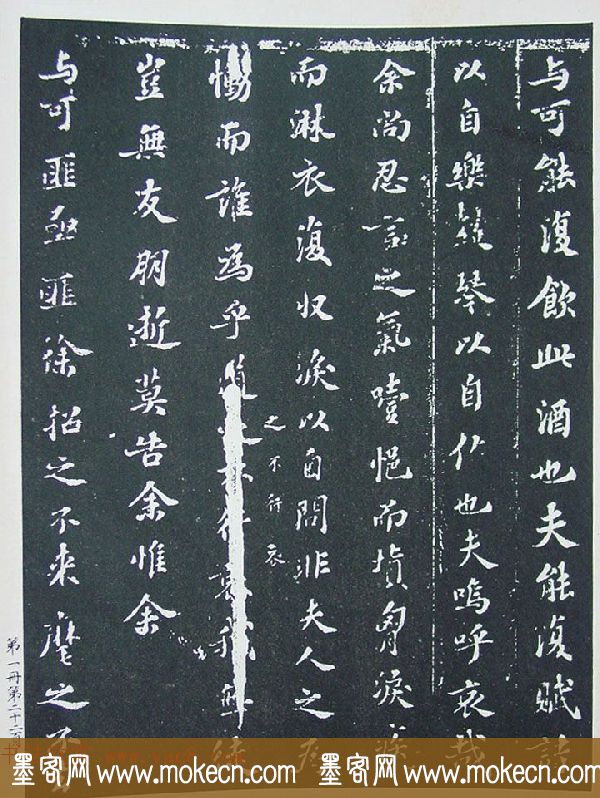 与可能復飲此酒也夫能復賦詩
以自樂鼓琴以自也夫嗚呼哀哉
余尚忍言之氣噎悒而填胷淚
而淋衣復収淚以自問非夫人之
慟而誰為乎道之不行哀我無徒
之不行哀
豈無友朋逝莫告余惟余
与可匪亟匪徐招之不来麾之不
第一册第二十二
墨客网 www.mokecn.com 墨客网 www.mokecn.com